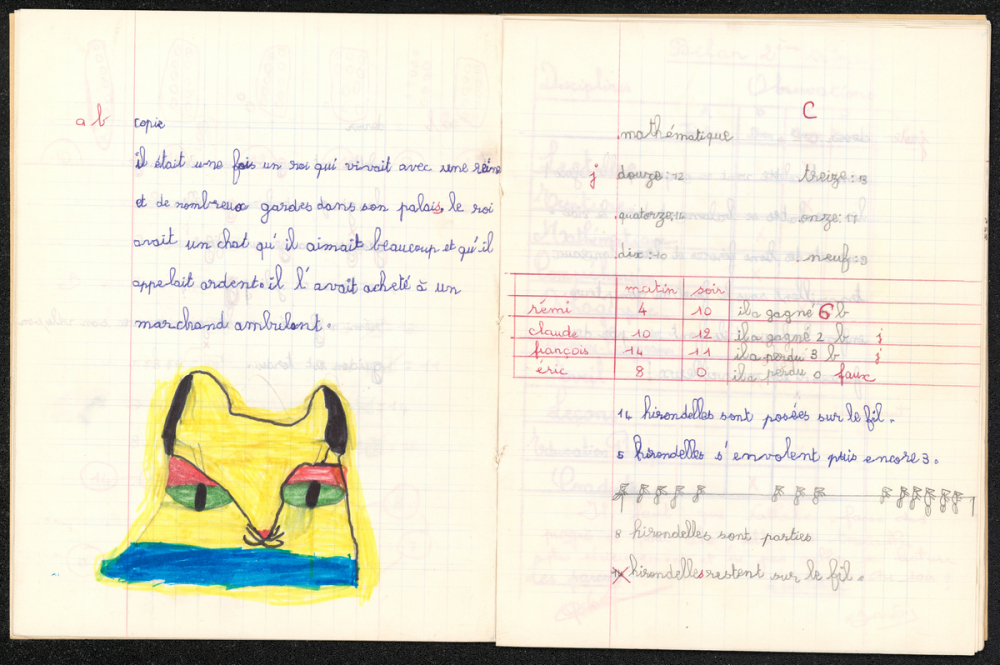 a b
copie
il était une fois un roi qui vivait avec une reine
et de nombreux gardes dans son palais, le roi
avait un chat qu'il aimait beaucoup et qu'il
appelait ardent. il l'avait acheté à un
marchand ambulant.
C
mathématique
j douze: 12 treize: 13
quatorze: 14 onze: 11
dix: 10 neuf: 9
matin soir
rémi 4 10 il a gagné 6 b
claude 10 12 il a gagné 2 b j
françois 14 11 il a perdu 3 b j
éric 8 0 il a perdu 0 faux
14 hirondelles sont posées sur le fil.
5 hirondelles s'envolent puis encore 3.
8 hirondelles sont parties
hirondelles restent sur le fil.